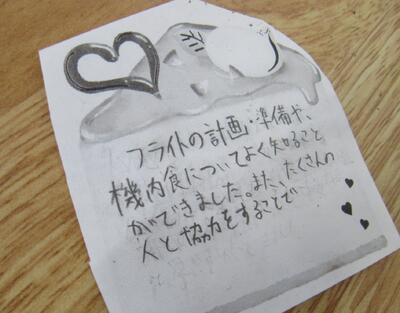 フライトの計画・準備や、
機内食についてよく知ること
ができました。また、たくさんの
人と協力をすることで